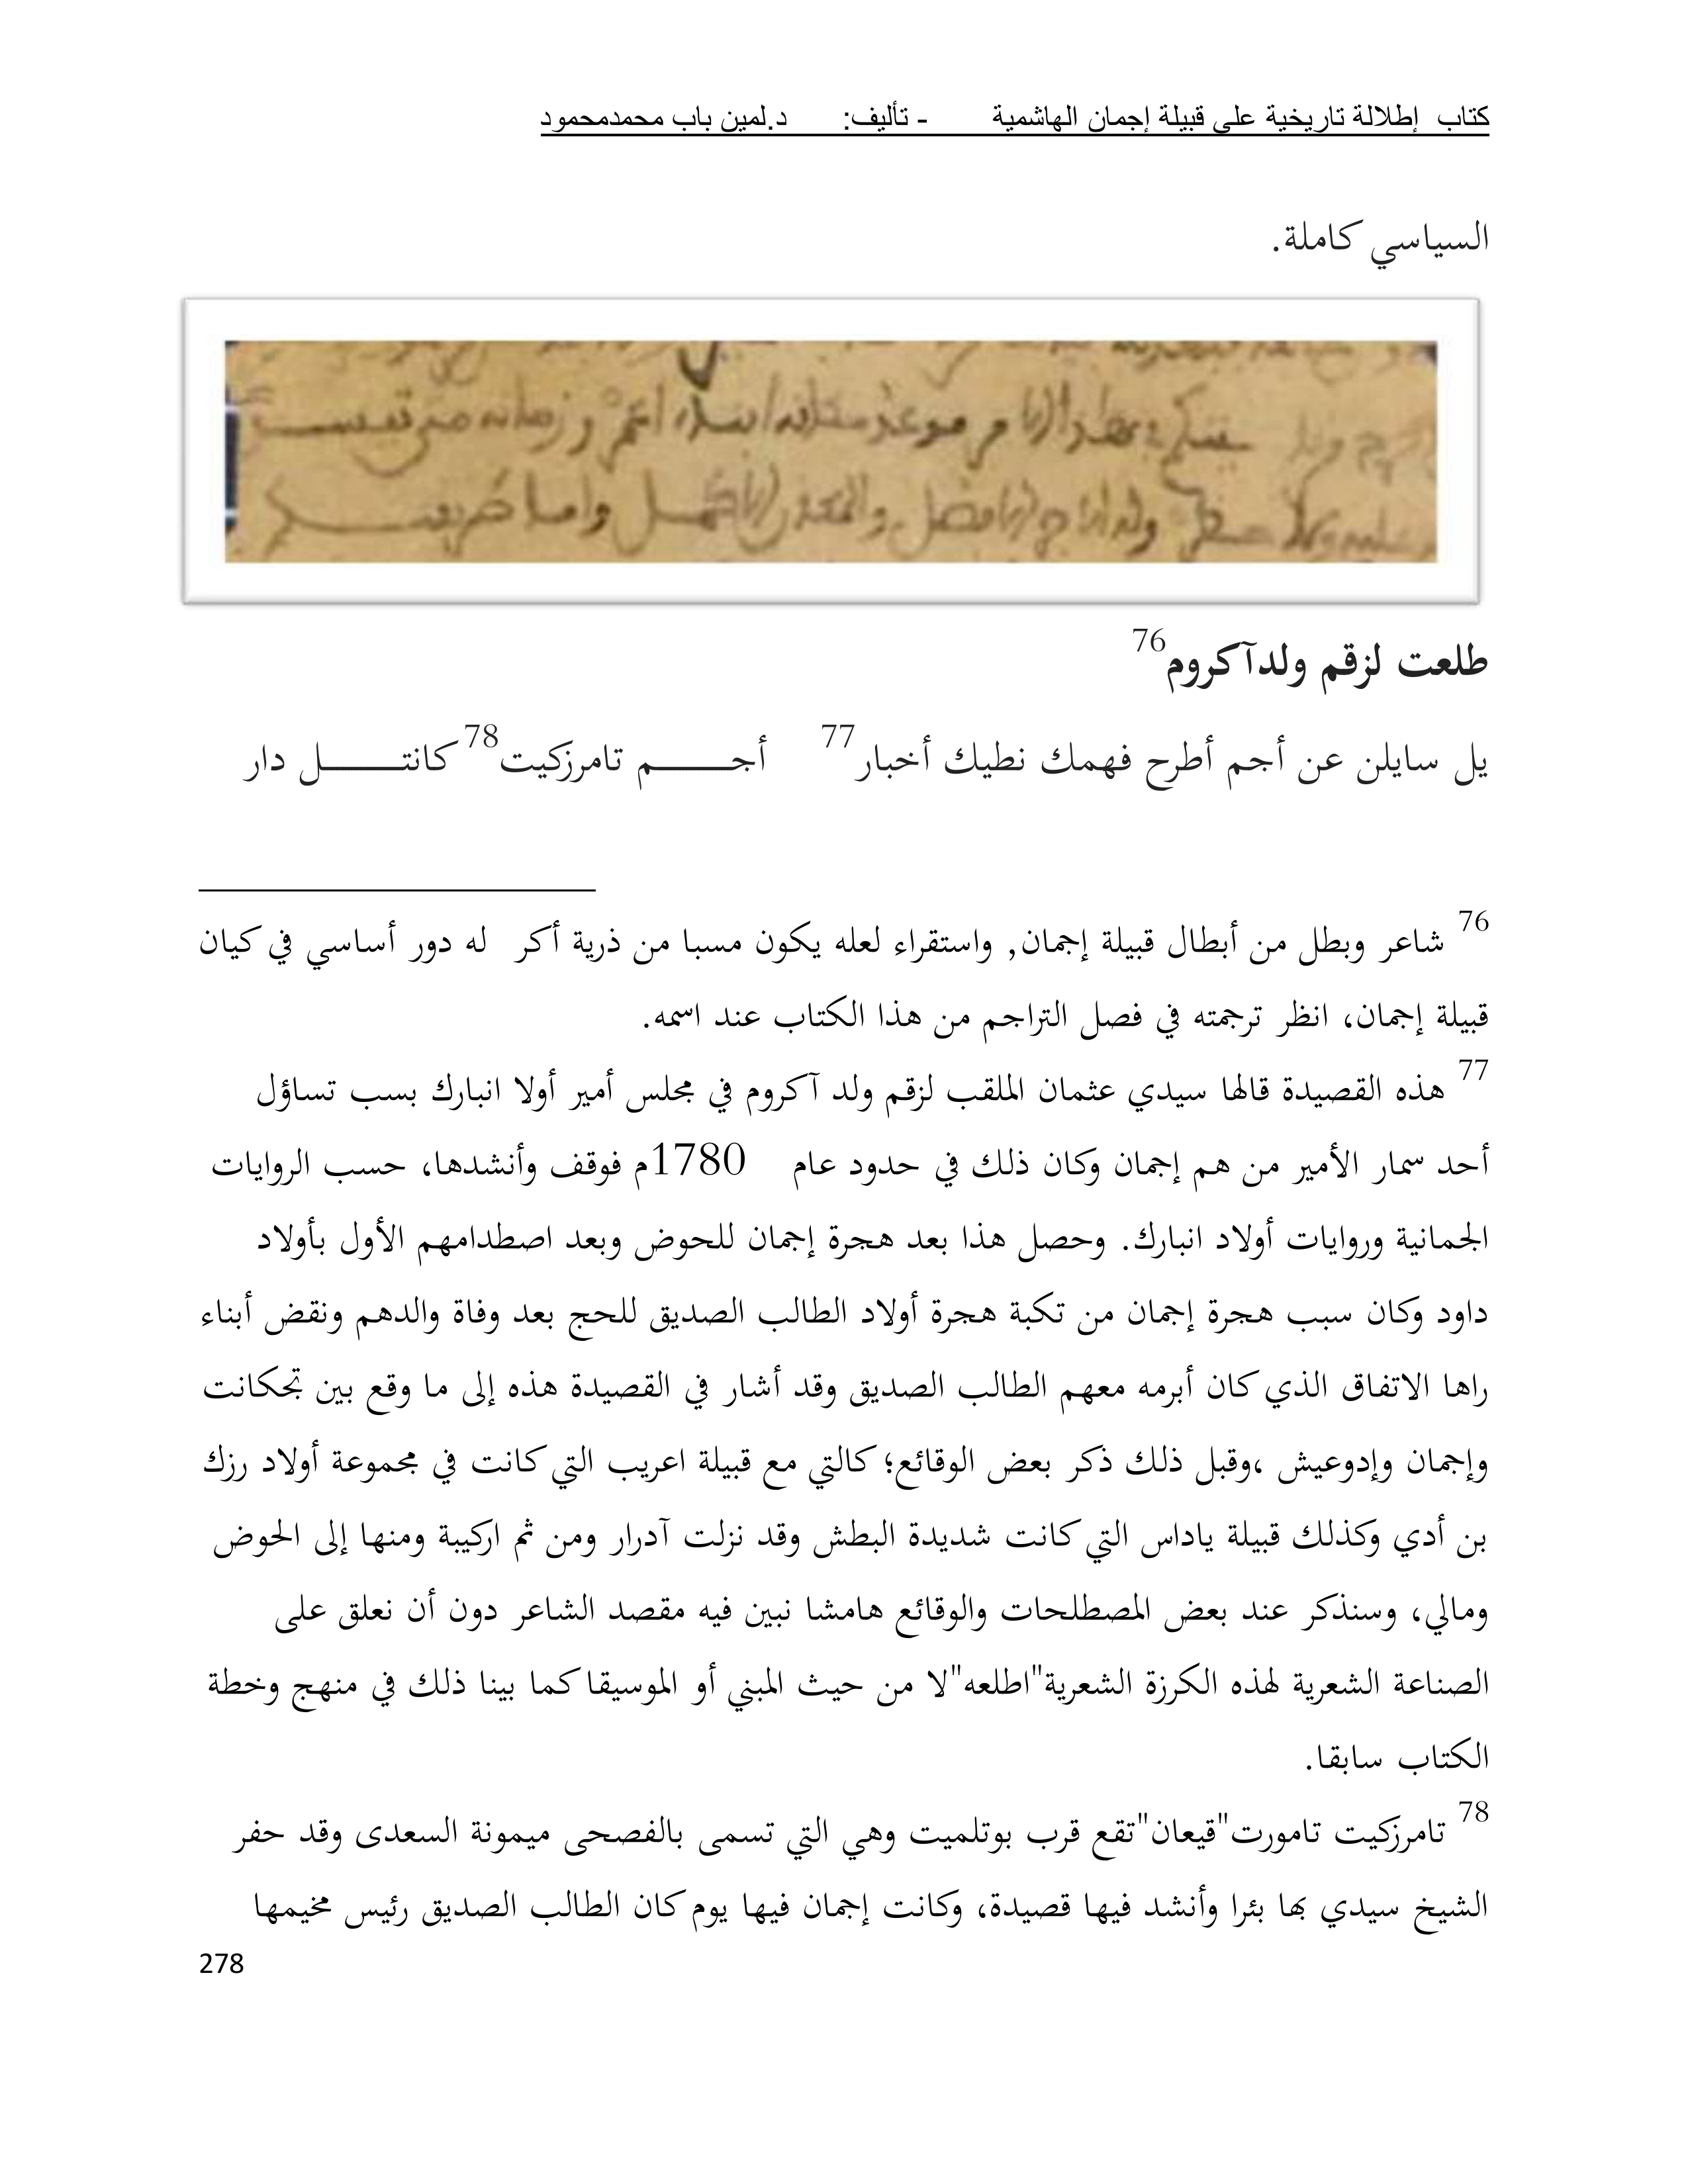 كتاب إطلالة تاريخية على قبيلة إجمان الهاشمية - تأليف: د.لمين باب محمدمحمود
السياسي كاملة.
طلعت لزقم ولدآكروم76
يل سايلن عن أجم أطرح فهمك نطيك أخبار77 أجـــــــم تامرزكيت78 كانتـــــــل دار
76 شاعر وبطل من أبطال قبيلة إجمان, واستقراء لعله يكون مسبا من ذرية أكر له دور أساسي في كيان
قبيلة إجمان، انظر ترجمته في فصل التراجم من هذا الكتاب عند اسمه.
77 هذه القصيدة قالها سيدي عثمان الملقب لزقم ولد آكروم في مجلس أمير أولا انبارك بسب تساؤل
أحد سمار الأمير من هم إجمان وكان ذلك في حدود عام 1780م فوقف وأنشدها، حسب الروايات
الجمانية وروايات أولاد انبارك. وحصل هذا بعد هجرة إجمان للحوض وبعد اصطدامهم الأول بأولاد
داود وكان سبب هجرة إجمان من تكبة هجرة أولاد الطالب الصديق للحج بعد وفاة والدهم ونقض أبناء
راها الاتفاق الذي كان أبرمه معهم الطالب الصديق وقد أشار في القصيدة هذه إلى ما وقع بين تجكانت
وإجمان وإدوعيش ،وقبل ذلك ذكر بعض الوقائع؛ كالتي مع قبيلة اعريب التي كانت في مجموعة أولاد رزك
بن أدي وكذلك قبيلة ياداس التي كانت شديدة البطش وقد نزلت آدرار ومن ثم اركيبة ومنها إلى الحوض
ومالي، وسنذكر عند بعض المصطلحات والوقائع هامشا نبين فيه مقصد الشاعر دون أن نعلق على
الصناعة الشعرية لهذه الكرزة الشعرية"اطلعه"لا من حيث المبني أو الموسيقا كما بينا ذلك في منهج وخطة
الكتاب سابقا.
78 تامرزكيت تامورت"قيعان"تقع قرب بوتلميت وهي التي تسمى بالفصحى ميمونة السعدى وقد حفر
الشيخ سيدي بها بئرا وأنشد فيها قصيدة، وكانت إجمان فيها يوم كان الطالب الصديق رئيس مخيمها
278